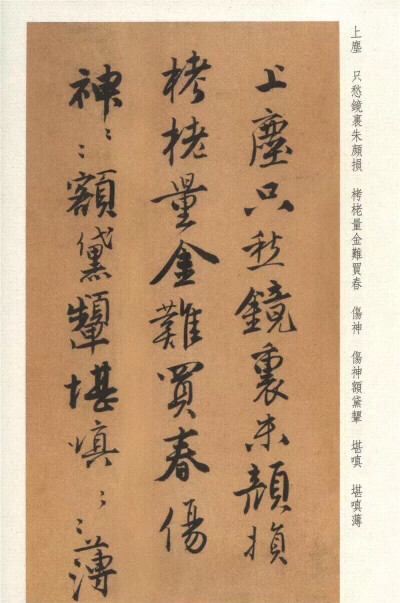 上塵　只愁鏡裏朱顏損　栲栳量金難買春　傷神　傷神額黛顰　堪嗔　堪嗔薄
上塵只愁鏡裏朱顏損
栲栳量金難買春傷
神〻額黛顰堪嗔〻薄